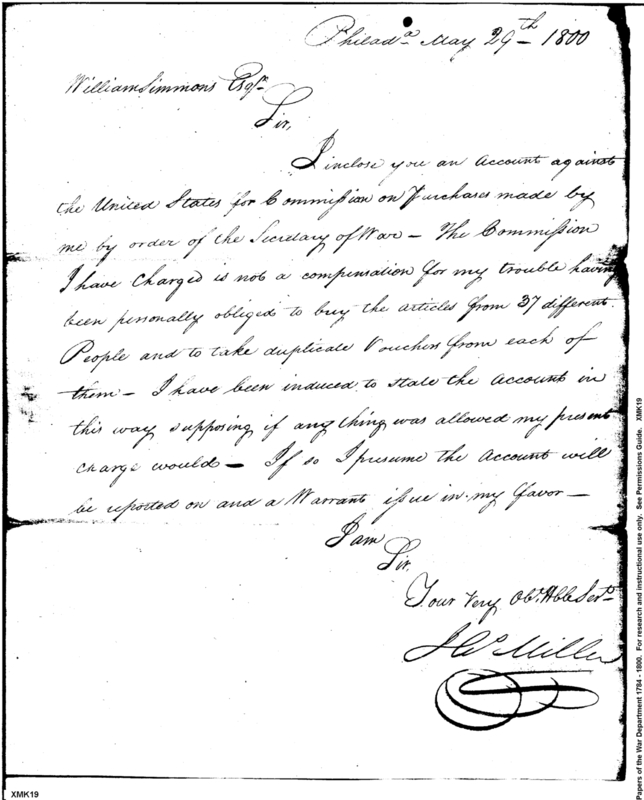 Philada. May 29th - 1800
William Simmons Esqr.
Sir,
I inclose you an Account against
the United States for Commission on Purchases made by
me by order of the Secretary of War - The Commission
I have Charged is not a compensation for my trouble having
been personally obliged to buy the articles from 37 different
People and to take duplicate Vouchers from each of
them - I have been induced to state the Account in
this way supposing if any thing was allowed my present
Charge would - If so I presume the Account will
be reported on and a Warrant issue in my favor -
I am
Sir,
Your Very Obt. Hble Servt.
Miller
XMK19
Papers of the War Department 1784 - 1800. For research and instructional use only. See Permissions Guide. XMK19